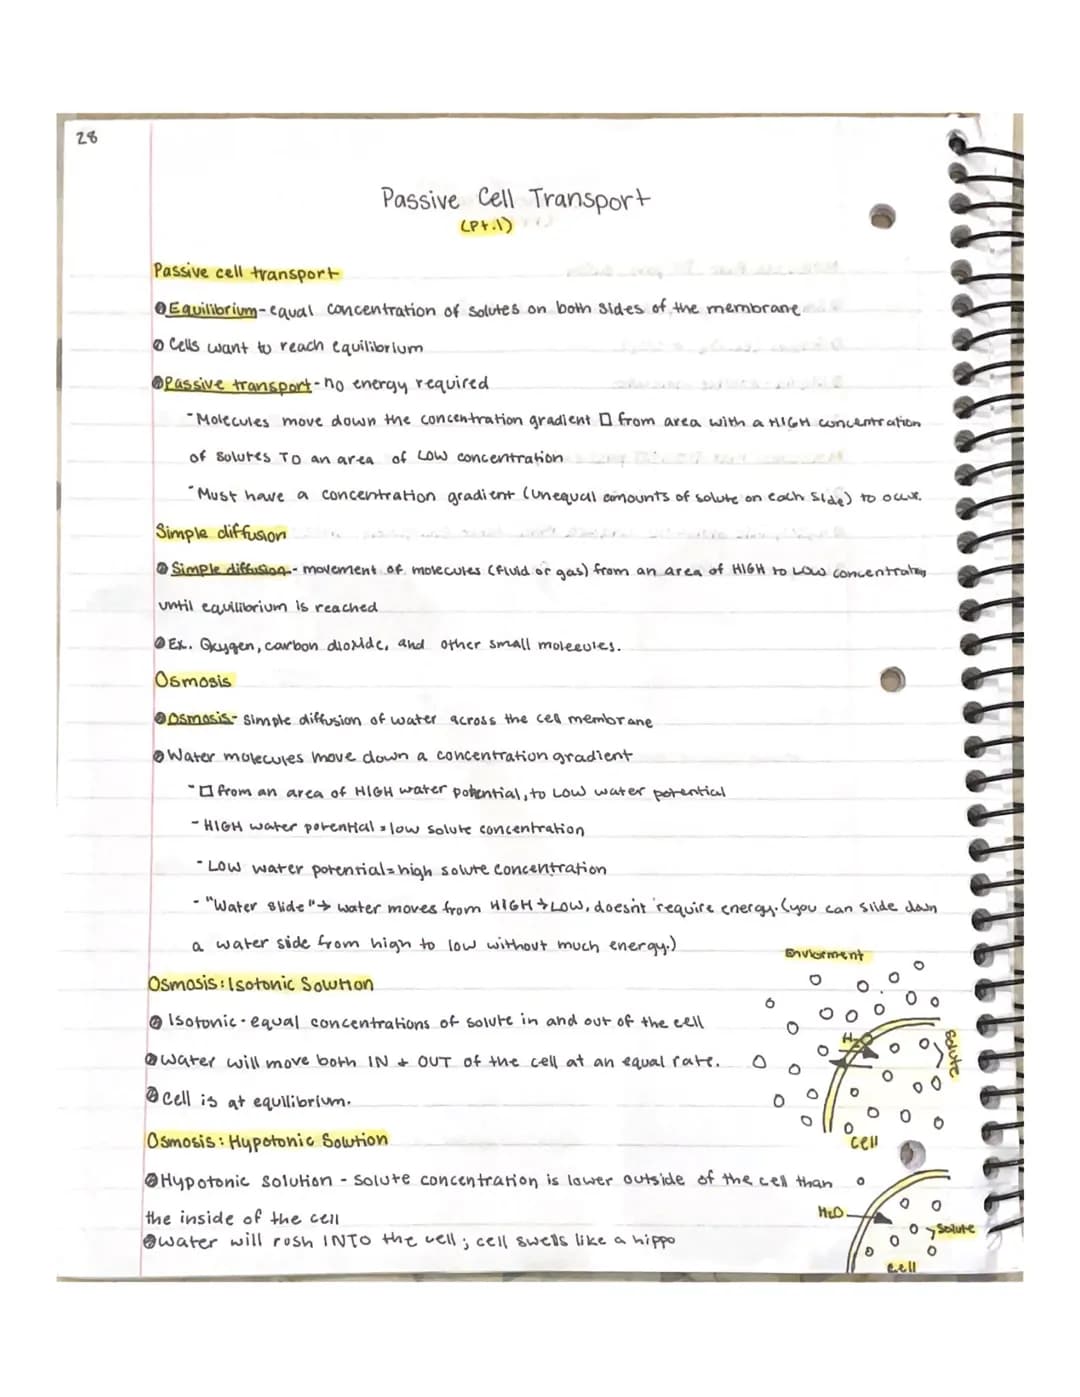 28
Passive Cell Transport
(Pt.1)
Passive cell transport
Equilibrium - equal concentration of solutes on both sides of the membrane
Cells want to reach equilibrium
Passive transport - no energy required
- Molecules move down the concentration gradient □ from area with a HIGH concentration
of solutes TO an area of LOW concentration
- Must have a concentration gradient (unequal amounts of solute on each side) to occur.
Simple diffusion
Simple diffusion - movement of molecules (fluid or gas) from an area of HIGH to LOW concentration
until equilibrium is reached
Ex. Oxygen, carbon dioxide, and other small molecules.
Osmosis
Osmosis - simple diffusion of water across the cell membrane
Water molecules move down a concentration gradient
- □ from an area of HIGH water potential, to LOW water potential
- HIGH water potential = low solute concentration
- LOW water potential = high solute concentration
- "Water slide" → water moves from HIGH → LOW, doesn't require energy. (you can slide down
a water side from high to low without much energy.)
Enviorment
Osmosis: Isotonic Solution
Isotonic - equal concentrations of solute in and out of the cell
water will move both IN + OUT of the cell at an equal rate.
Cell is at equilibrium.
H2O
Solute
Cell
Osmosis: Hypotonic Solution
Hypotonic solution - solute concentration is lower outside of the cell than
the inside of the cell
water will rush INTO the cell; cell swells like a hippo
H2O
Solute
Cell